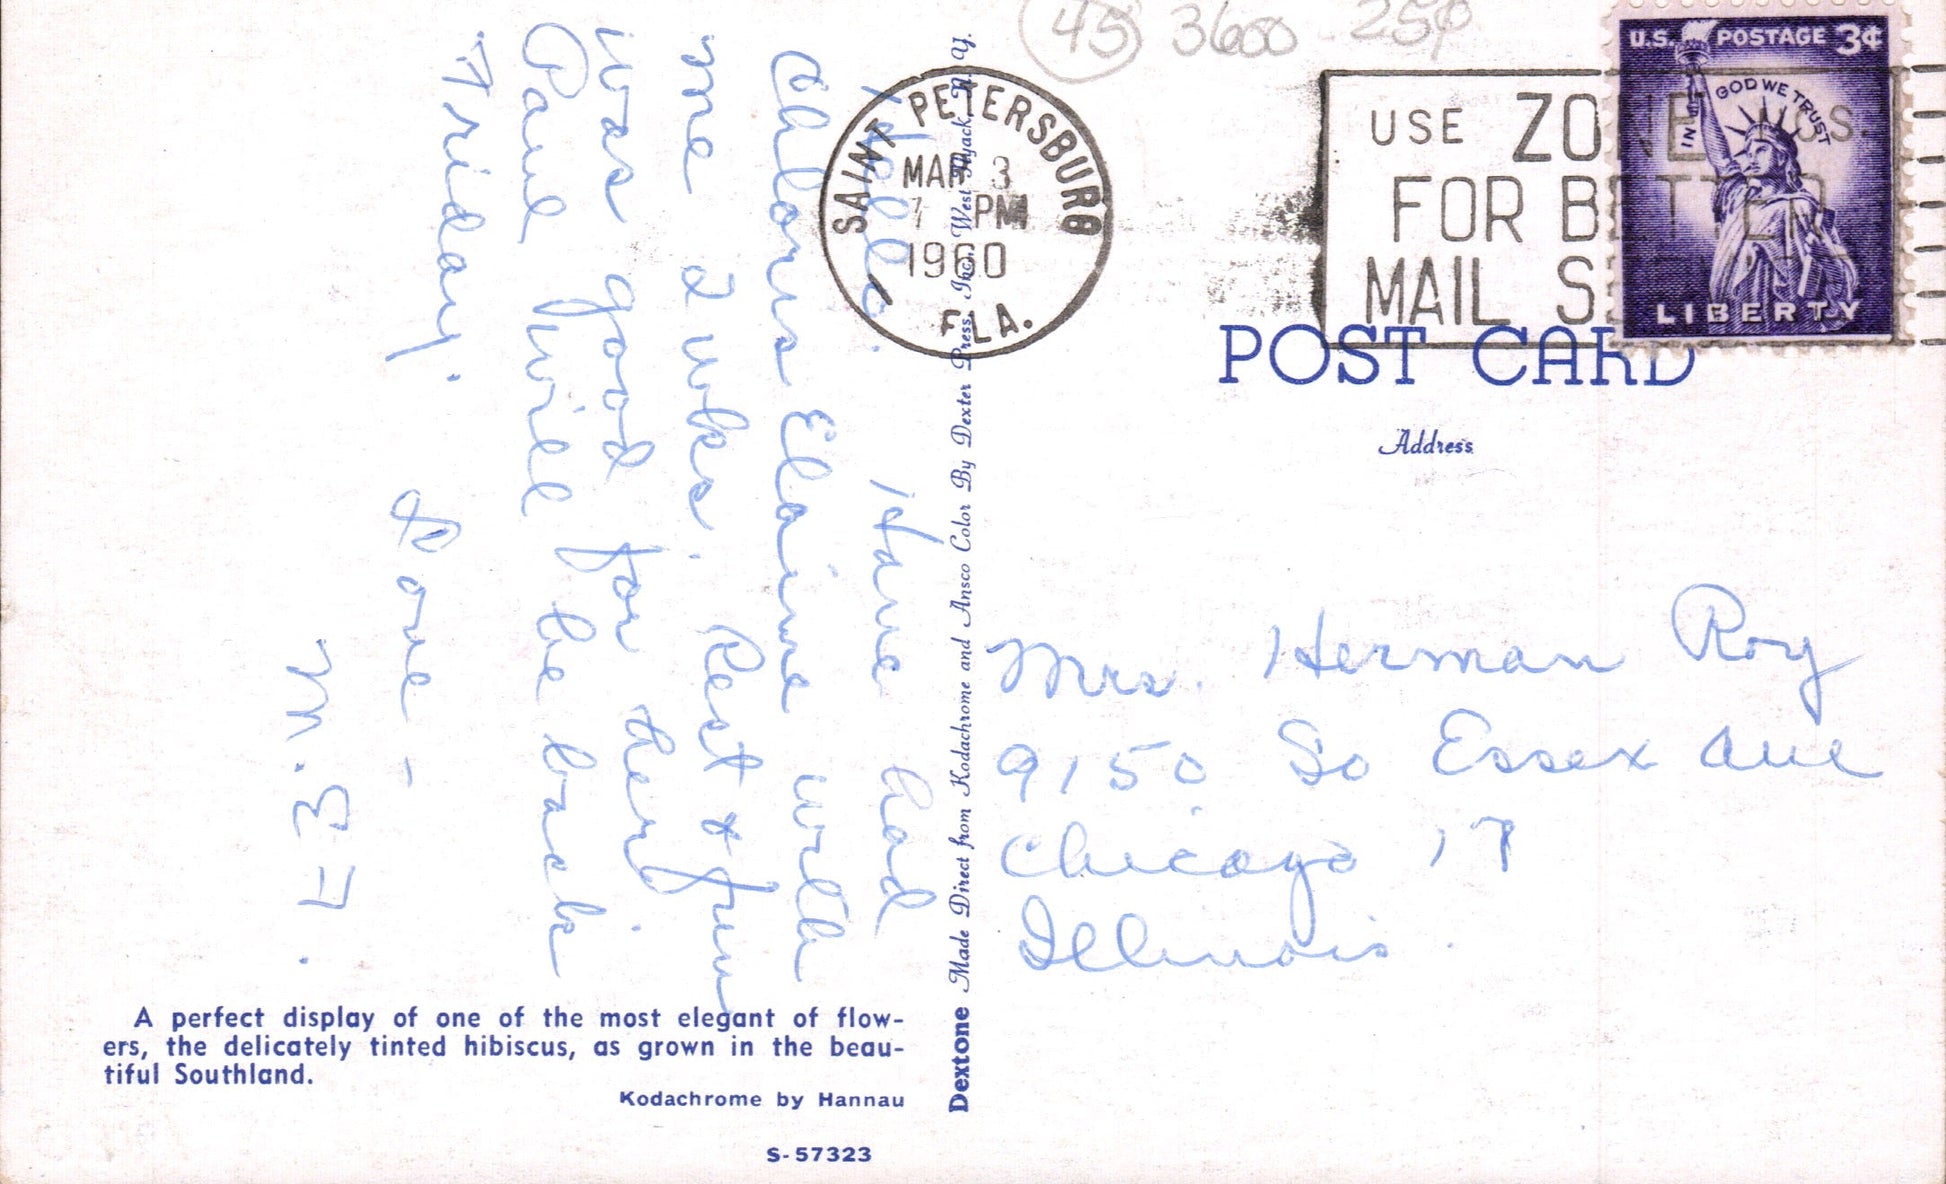 Hello. Have had
Chloris Elaine with
me 2 wks. Rest & fun
was good for her.
Paul will be back
Friday.
Love -
M.E.F.
A perfect display of one of the most elegant of flow-
ers, the delicately tinted hibiscus, as grown in the beau-
tiful Southland.
Kodachrome by Hannau
S-57323
Dextone Made Direct from Kodachrome and Ansco Color By Dexter Press, Inc., West Nyack, N. Y.
45 3600 25¢
SAINT PETERSBURG
MAR 3
7 PM
1960
FLA.
USE ZONE NOS.
FOR BETTER
MAIL S
U.S. POSTAGE 3¢
IN GOD WE TRUST
LIBERTY
POST CARD
Address
Mrs. Herman Roy
9150 So Essex Ave
Chicago 17
Illinois.